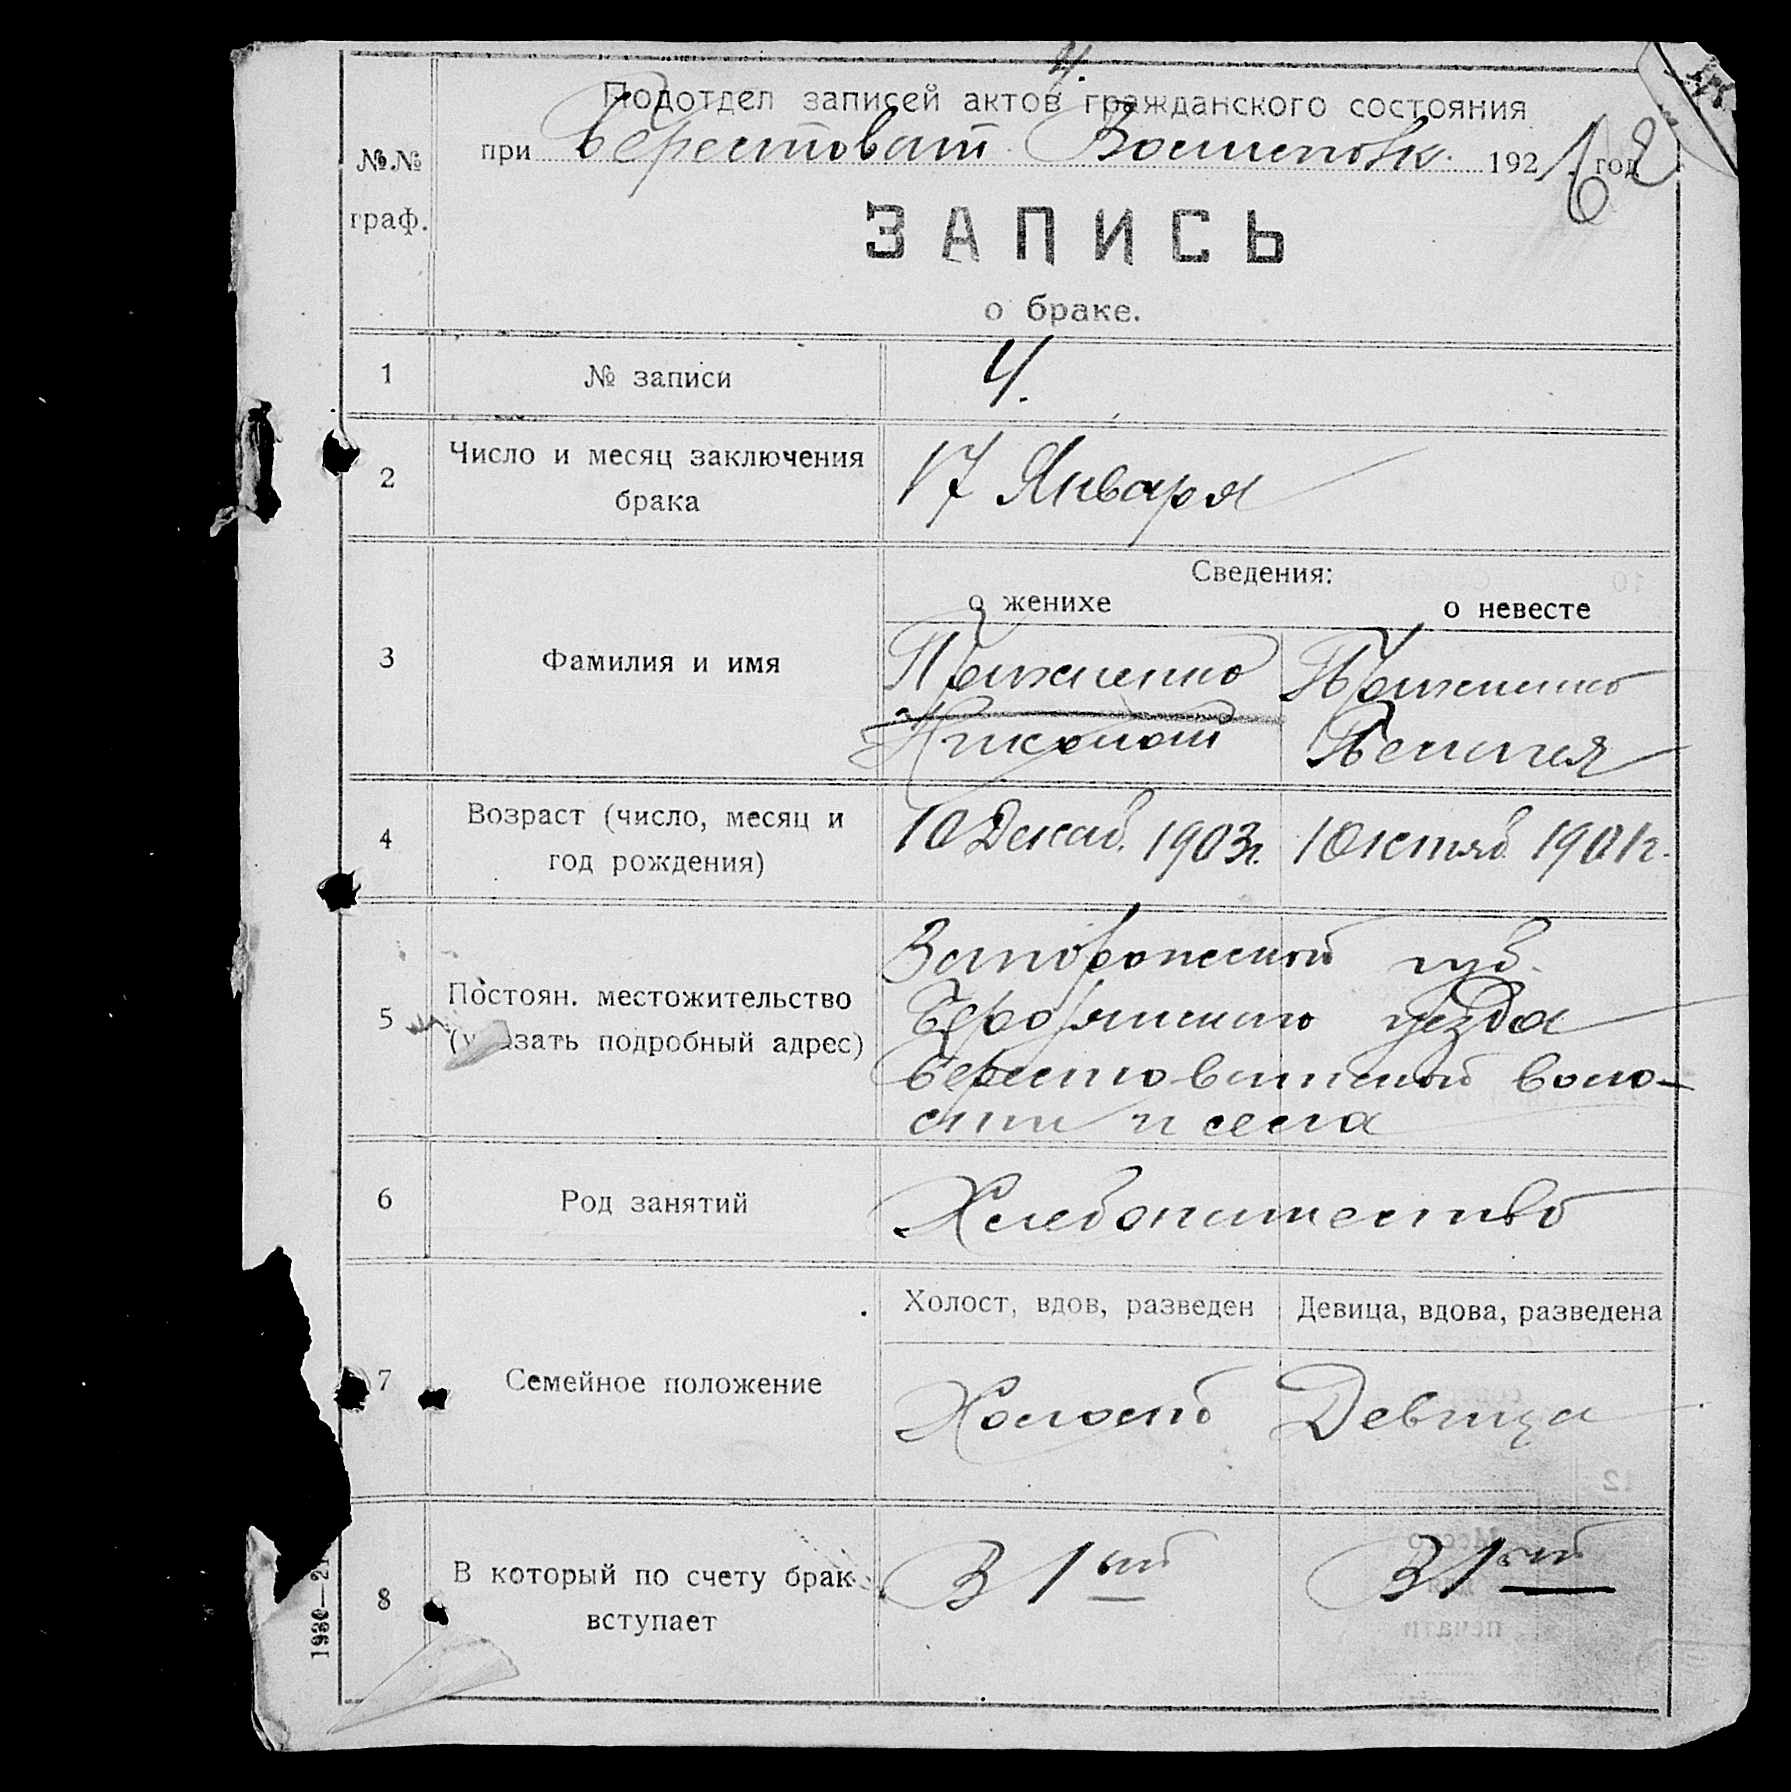 4.
Подотдел записей актов гражданского состояния
при Берестоват. Волисполк. 1921 год
62
№№
граф.
ЗАПИСЬ
о браке.
1 № записи 4.
2 Число и месяц заключения
брака
17 Января
Сведения:
о женихе о невесте
3 Фамилия и имя
4 Возраст (число, месяц и
год рождения)
10 Декаб. 1903 г. 1 Октяб. 1901 г.
5 Постоян. местожительство
(указать подробный адрес)
Запорожской губ.
Бердянского уезда
Берестоватской воло-
сти и села
6 Род занятий Хлебопашество
Холост, вдов, разведен Девица, вдова, разведена
7 Семейное положение
Холост Девица
8 В который по счету брак
вступает
В 1ый В 1ый
1930—21